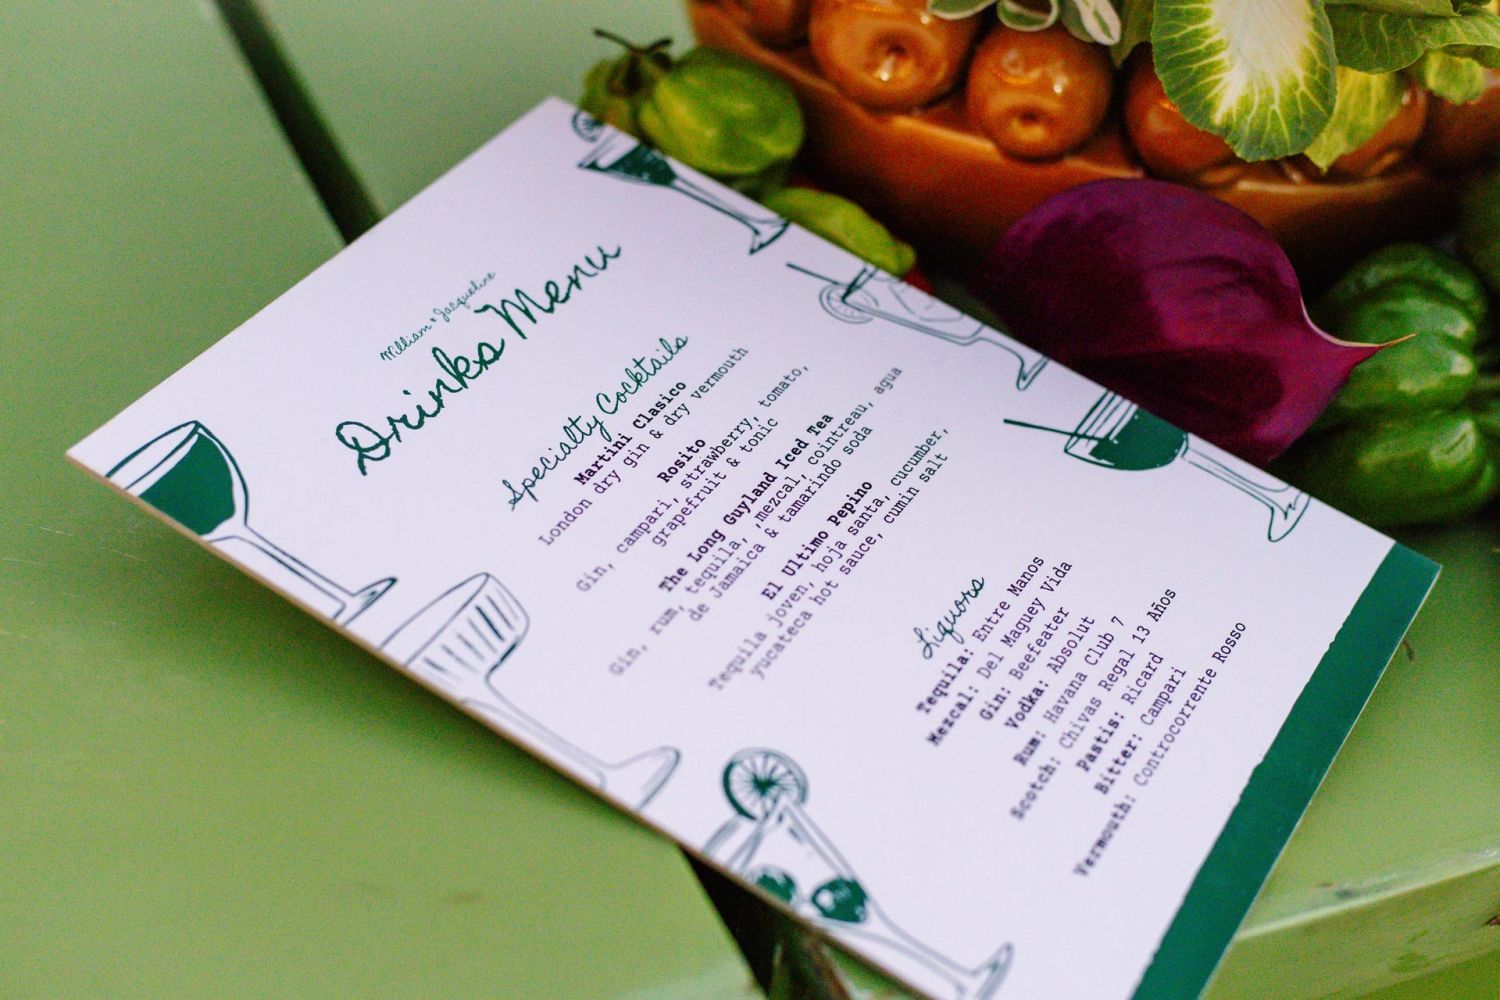 William & Jacqueline
Drinks Menu
Specialty Cocktails
Martini Clasico
London dry gin & dry vermouth
Rosito
Gin, campari, strawberry, tomato,
grapefruit & tonic
The Long Guyland Iced Tea
Gin, rum, tequila, ,mezcal, cointreau, agua
de Jamaica & tamarindo soda
El Ultimo Pepino
Tequila joven, hoja santa, cucumber,
yucateca hot sauce, cumin salt
Liquors
Tequila: Entre Manos
Mezcal: Del Maguey Vida
Gin: Beefeater
Vodka: Absolut
Rum: Havana Club 7
Scotch: Chivas Regal 13 Años
Pastis: Ricard
Bitter: Campari
Vermouth: Controcorrente Rosso